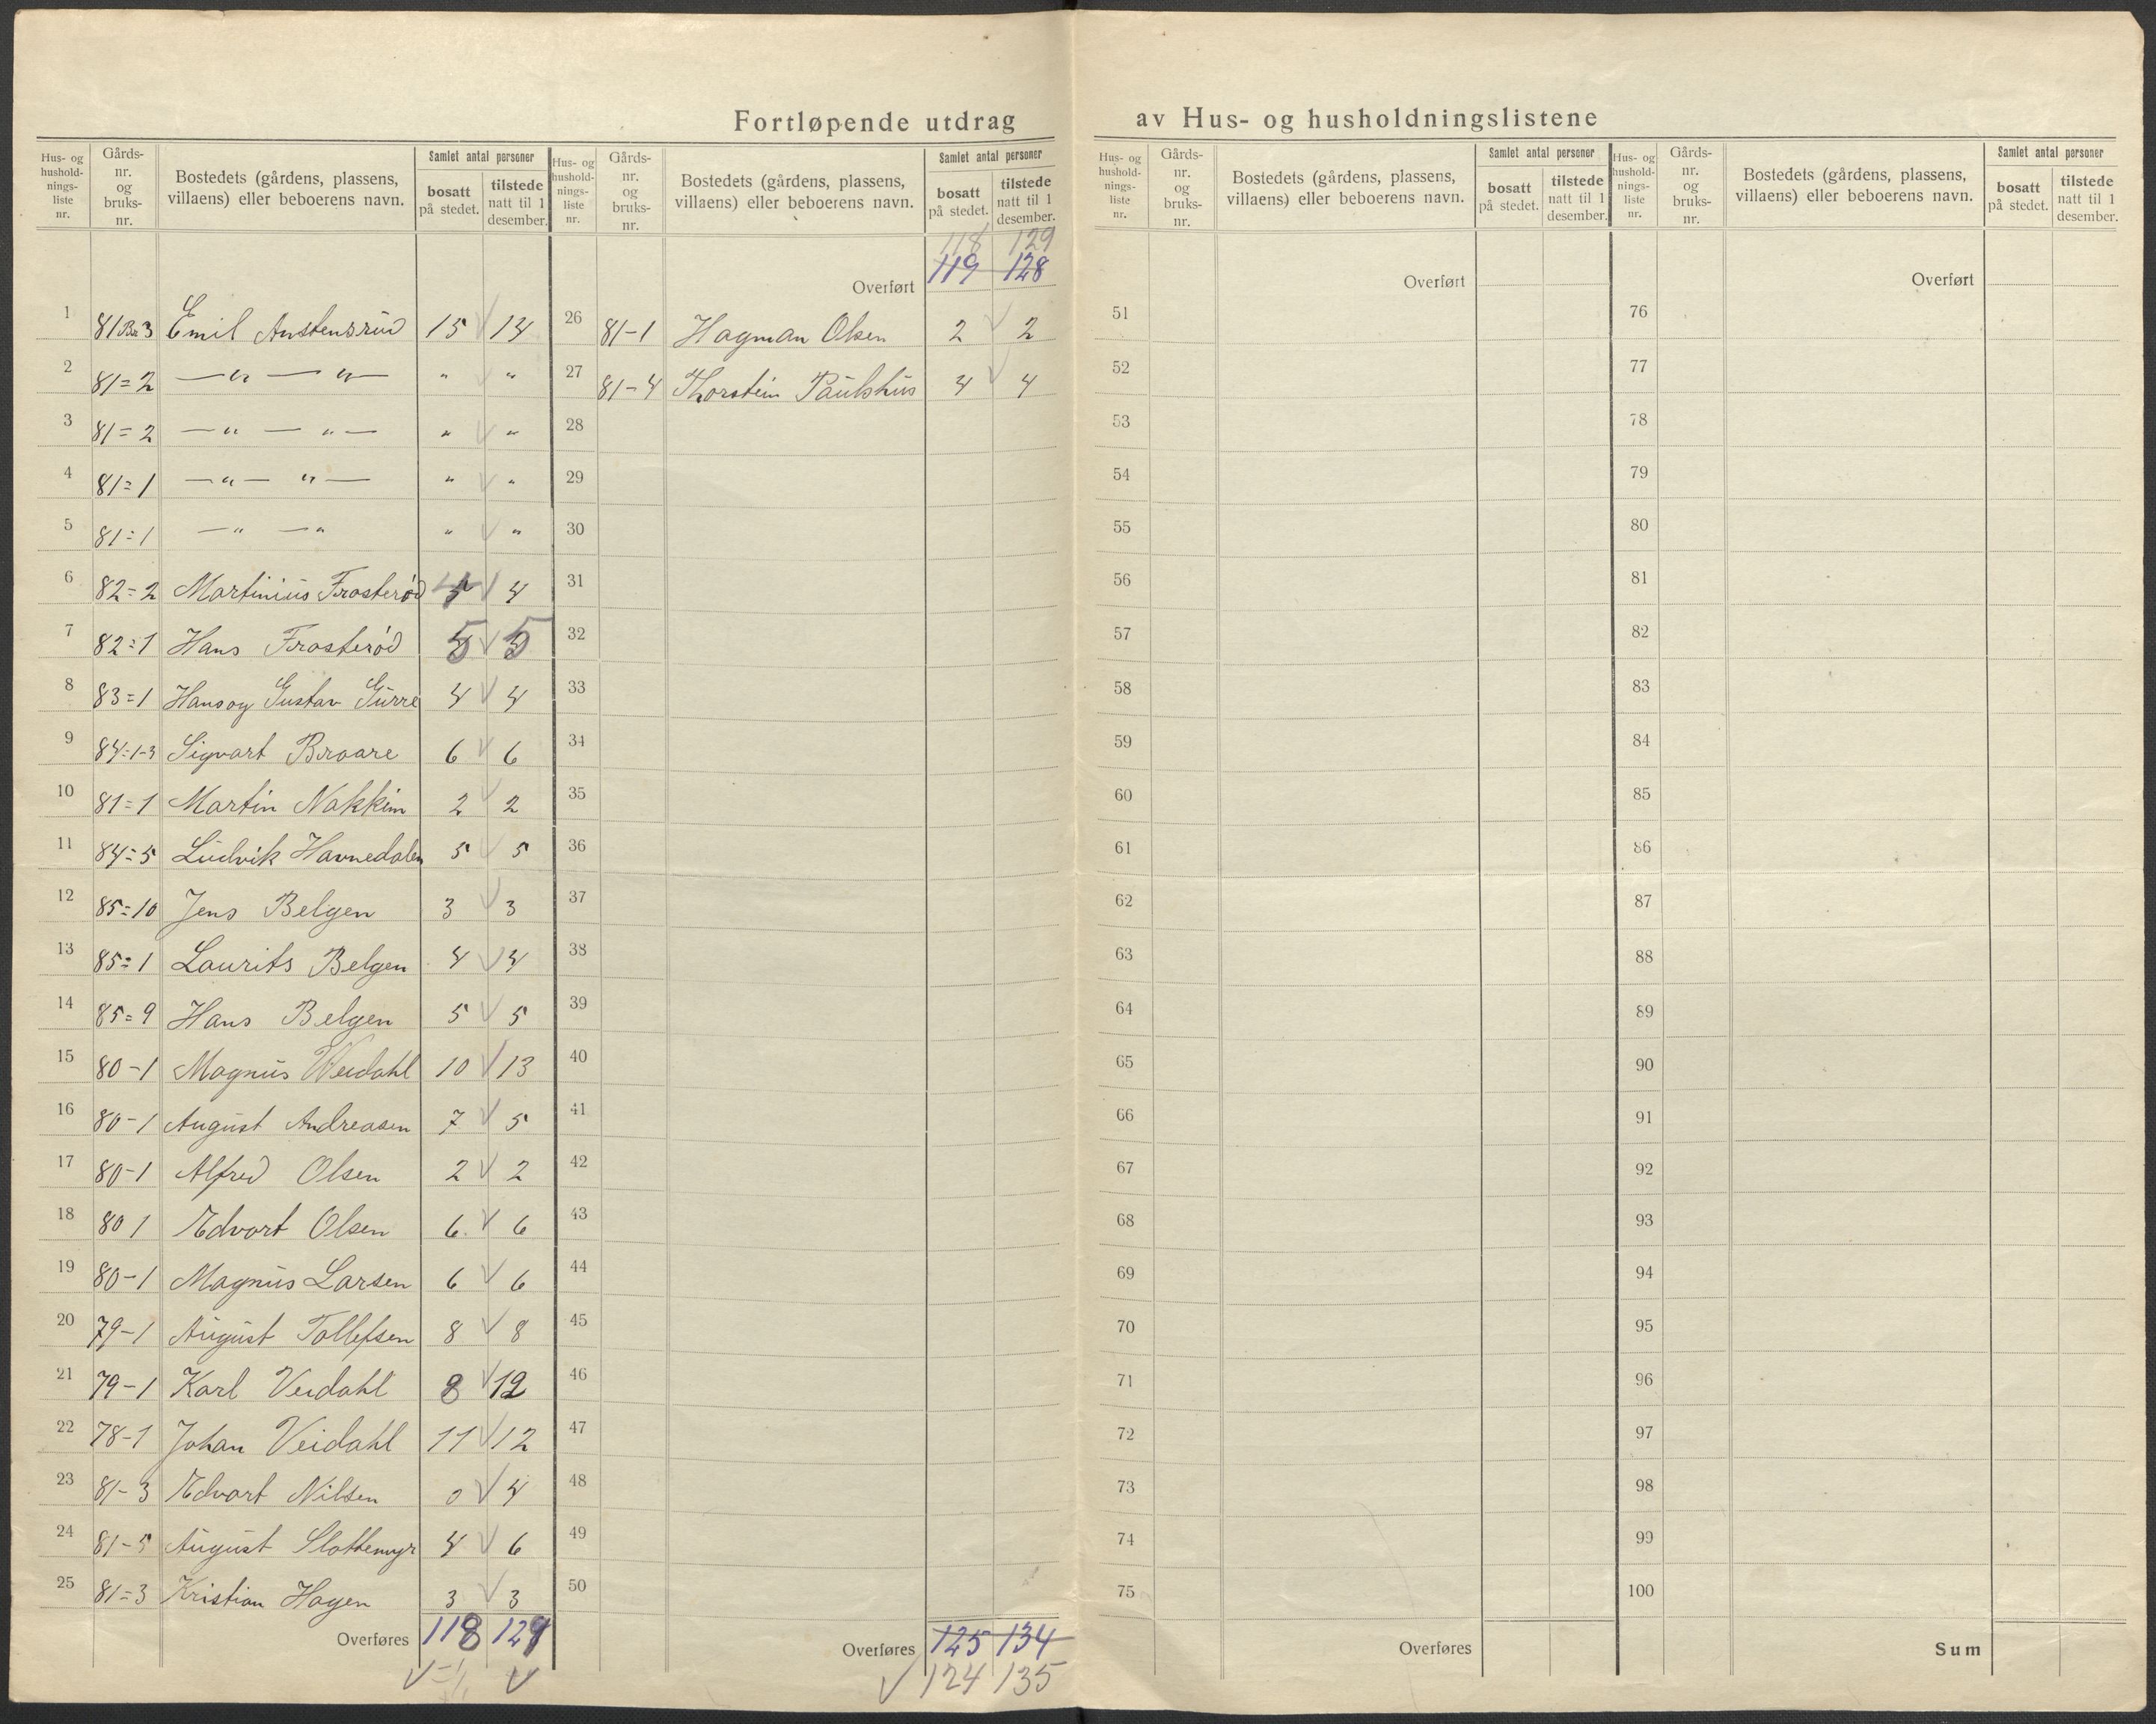 Fortløpende utdrag av Hus- og husholdningslistene
Hus- og hushold-nings-liste nr. Gårds-nr. og bruks-nr. Bostedets (gårdens, plassens, villaens) eller beboerens navn. Samlet antal personer bosatt på stedet. tilstede natt til 1 desember.
1 81 Br 3 Emil Anstensrud 15 √ 14
2 81=2 — „ — „ — „ √ „
3 81=2 — „ — „ — „ √ „
4 81=1 — „ — „ — „ √ „
5 81=1 — „ — „ „ √ „
6 82=2 Martinius Frosterød 4 √ 4
7 82=1 Hans Frosterød 5 √ 5
8 83=1 Hans og Gustav Gurre 4 √ 4
9 84=1-3 Sigvart Braare 6 √ 6
10 81=1 Martin Nakkim 2 √ 2
11 84=5 Ludvik Havnedalen 5 √ 5
12 85=10 Jens Belgen 3 √ 3
13 85=1 Laurits Belgen 4 √ 4
14 85=9 Hans Belgen 5 √ 5
15 80-1 Magnus Weidahl 10 √ 13
16 80-1 August Andreasen 7 √ 5
17 80-1 Alfred Olsen 2 √ 2
18 80 1 Edvart Olsen 6 √ 6
19 80-1 Magnus Larsen 6 √ 6
20 79-1 August Tollefsen 8 √ 8
21 79-1 Karl Veidahl 8 √ 12
22 78-1 Johan Veidahl 11 √ 12
23 81-3 Edvart Nilsen 0 √ 4
24 81-5 August Slottemyr 4 √ 6
25 81=3 Kristian Hagen 3 √ 3
Overføres 118 129
√ √
Hus- og hushold-nings-liste nr. Gårds-nr. og bruks-nr. Bostedets (gårdens, plassens, villaens) eller beboerens navn. Samlet antal personer bosatt på stedet. tilstede natt til 1 desember.
118 129
Overført 119 128
26 81-1 Hagman Olsen 2 √ 2
27 81-4 Thorstein Paulshus 4 √ 4
28
29
30
31
32
33
34
35
36
37
38
39
40
41
42
43
44
45
46
47
48
49
50
Overføres 125 134
√ 124 135
Hus- og hushold-nings-liste nr. Gårds-nr. og bruks-nr. Bostedets (gårdens, plassens, villaens) eller beboerens navn. Samlet antal personer bosatt på stedet. tilstede natt til 1 desember.
Overført
51
52
53
54
55
56
57
58
59
60
61
62
63
64
65
66
67
68
69
70
71
72
73
74
75
Overføres
Hus- og hushold-nings-liste nr. Gårds-nr. og bruks-nr. Bostedets (gårdens, plassens, villaens) eller beboerens navn. Samlet antal personer bosatt på stedet. tilstede natt til 1 desember.
Overført
76
77
78
79
80
81
82
83
84
85
86
87
88
89
90
91
92
93
94
95
96
97
98
99
100
Sum